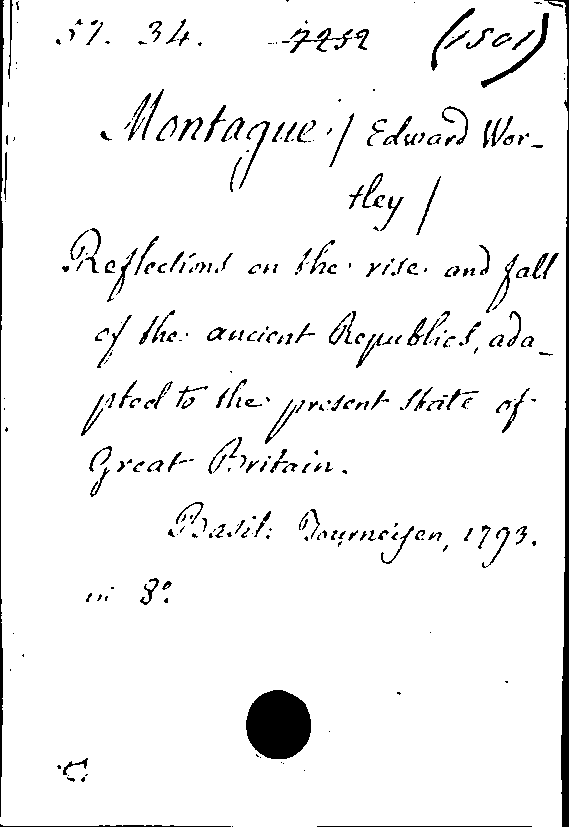 57. 34. 7252 (1501)
Montague / Edward Wor-
tley /
Reflections on the rise and fall
of the ancient Republics, ada-
pted to the present State of
Great Britain.
Basil: Tourneisen, 1793.
in 8º.
C.